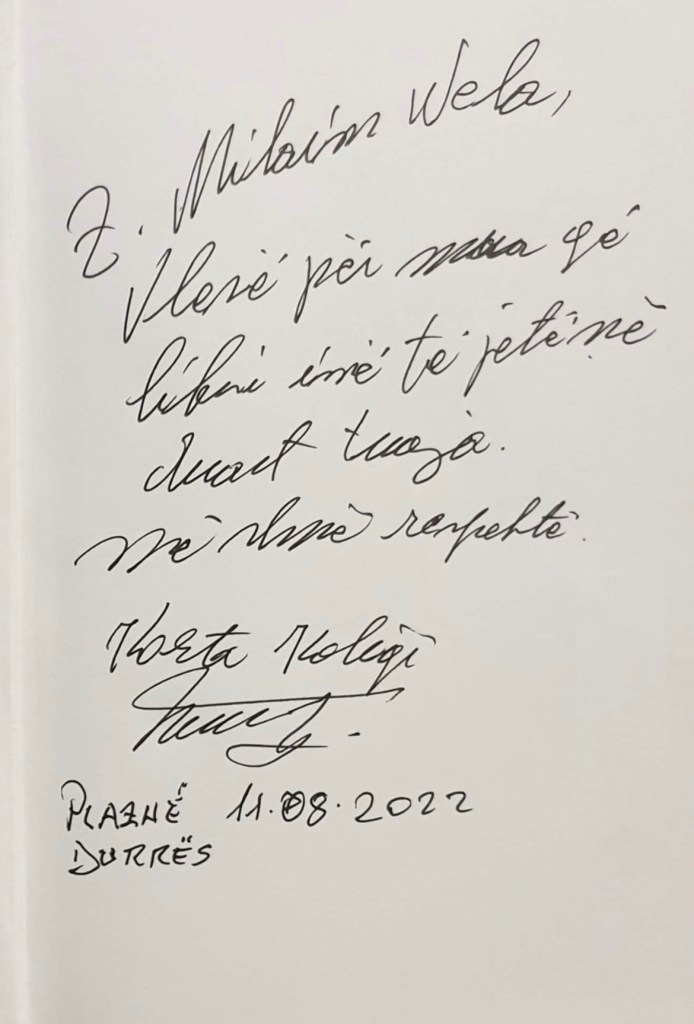 Z. Milaim Wela,
Vlerë për mua që
libri imë të jetë në
duart tuaja.
Më shumë respektë.
Kozta Koligi
PLAZHË 11.08.2022
DURRËS